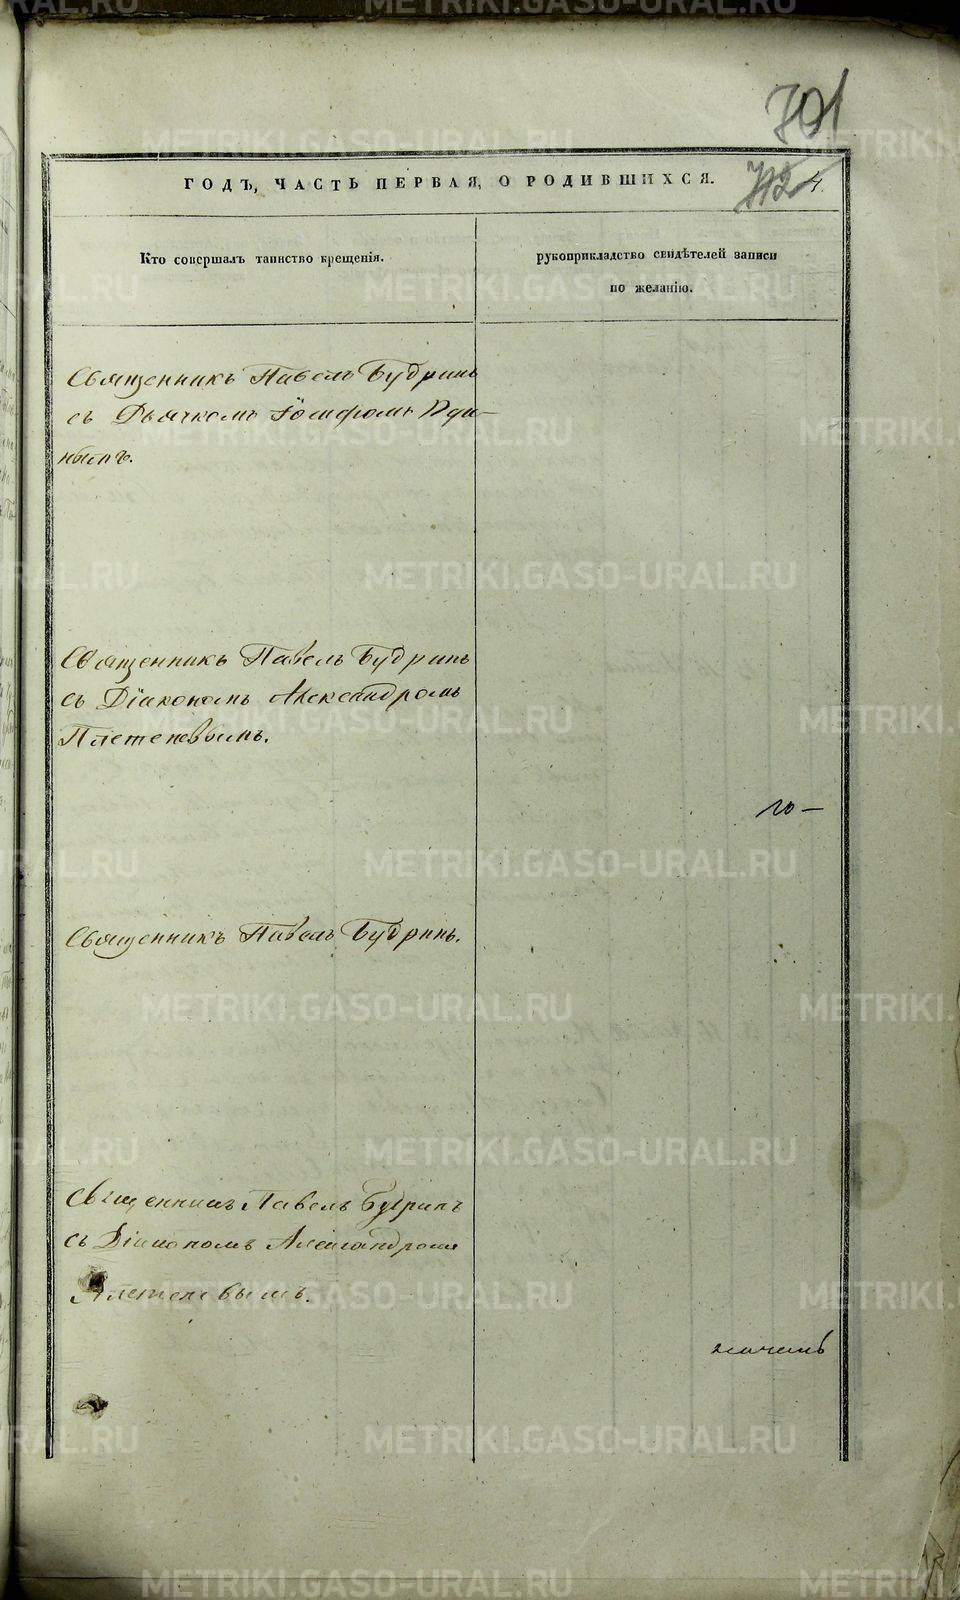 701
712 4.
ГОДЪ, ЧАСТЬ ПЕРВАЯ, О РОДИВШИХСЯ.
Кто совершалъ таинство крещенія.
рукоприкладство свидѣтелей записи
по желанію.
Священникъ Павелъ Будринъ
съ Дьячкомъ Іосифомъ
нымъ.
Священникъ Павелъ Будринъ
съ Діакономъ Александромъ
Плетеневымъ.
Священникъ Павелъ Будринъ.
Священникъ Павелъ Будринъ
съ Діакономъ Александромъ
Плетеневымъ.
METRIKI.GASO-URAL.RU